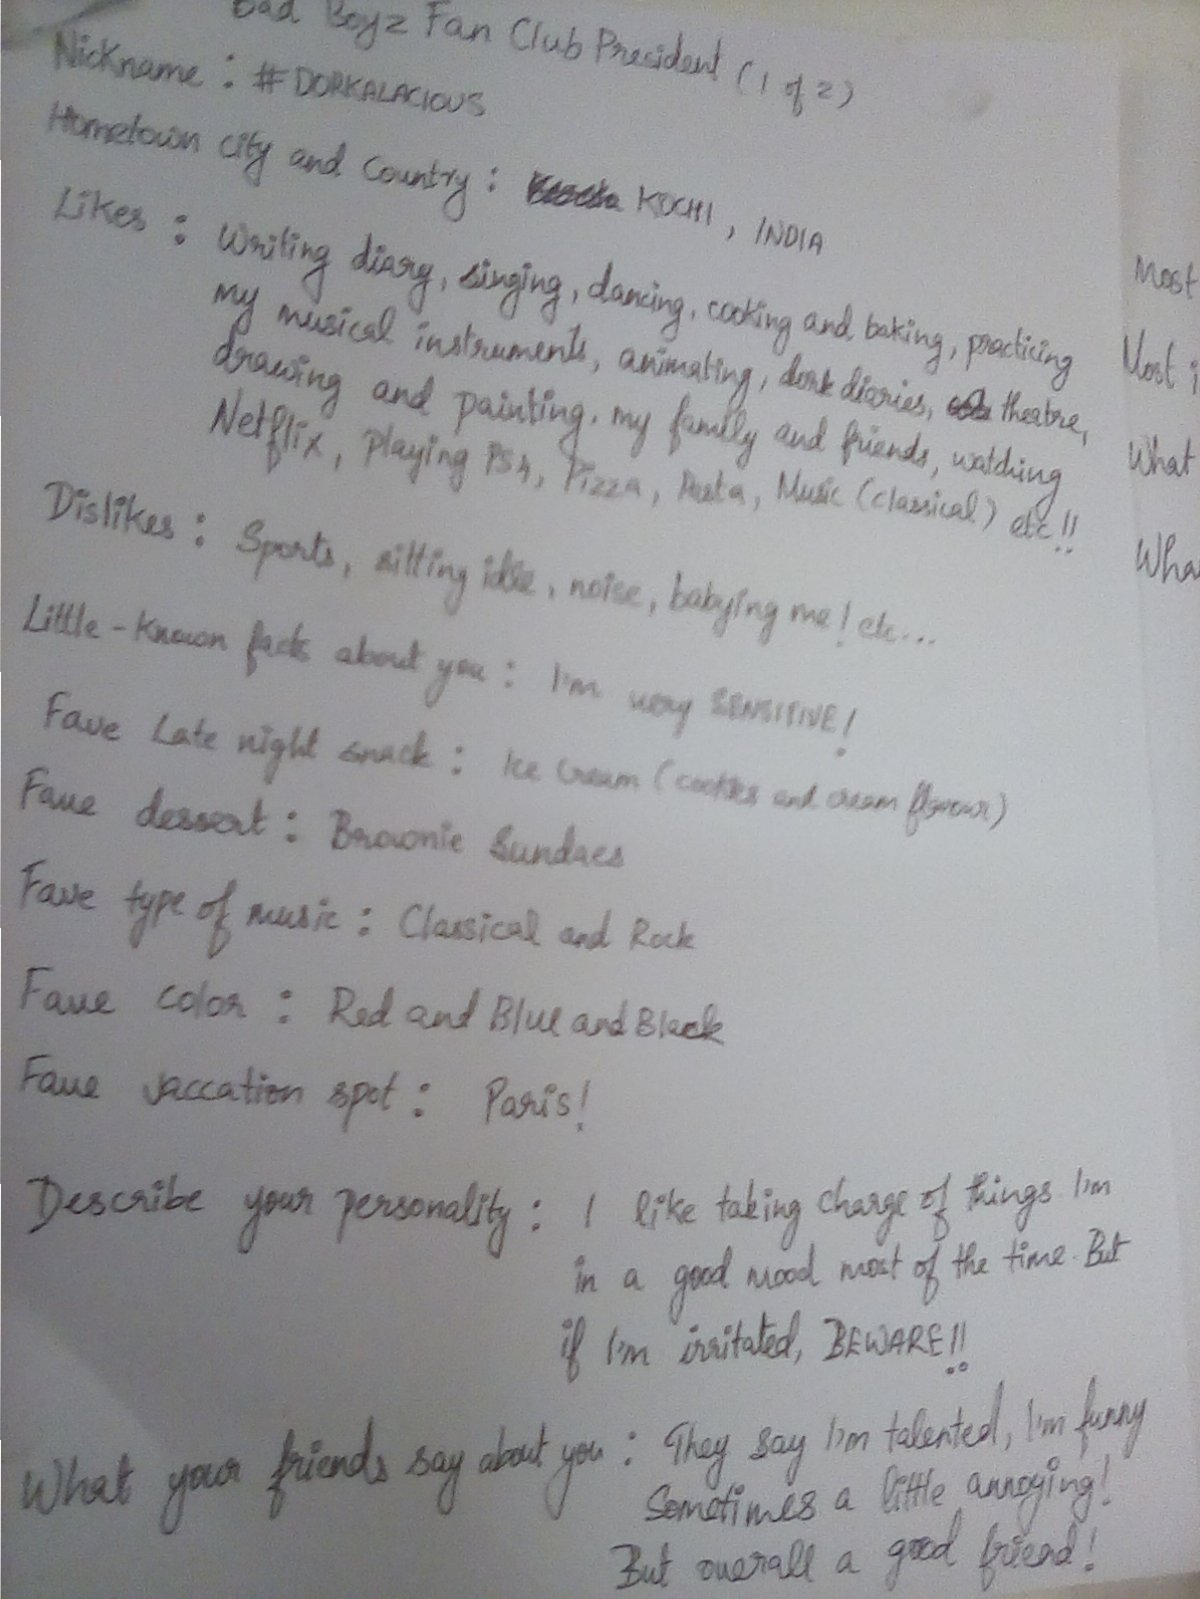 Bad Boyz Fan Club President (1 of 2)
Nickname : #DORKALACIOUS
Hometown city and Country : KOCHI, INDIA
Likes : Writing diary, singing, dancing, cooking and baking, practicing
my musical instruments, animating, dork diaries, theatre,
drawing and painting, my family and friends, watching
Netflix, Playing PS4, Pizza, Pasta, Music (classical) etc!!
Dislikes : Sports, sitting idle, noise, babying me! etc...
Little-Known facts about you : I'm very SENSITIVE!
Fave Late night snack : Ice Cream (cookies and cream flavour)
Fave dessert : Brownie Sundaes
Fave type of music : Classical and Rock
Fave color : Red and Blue and Black
Fave vaccation spot : Paris!
Describe your personality : I like taking charge of things I'm
in a good mood most of the time. But
if I'm irritated, BEWARE!!
What your friends say about you : They say I'm talented, I'm funny
Sometimes a little annoying!
But overall a good friend!
Most
Most i
What
Wha